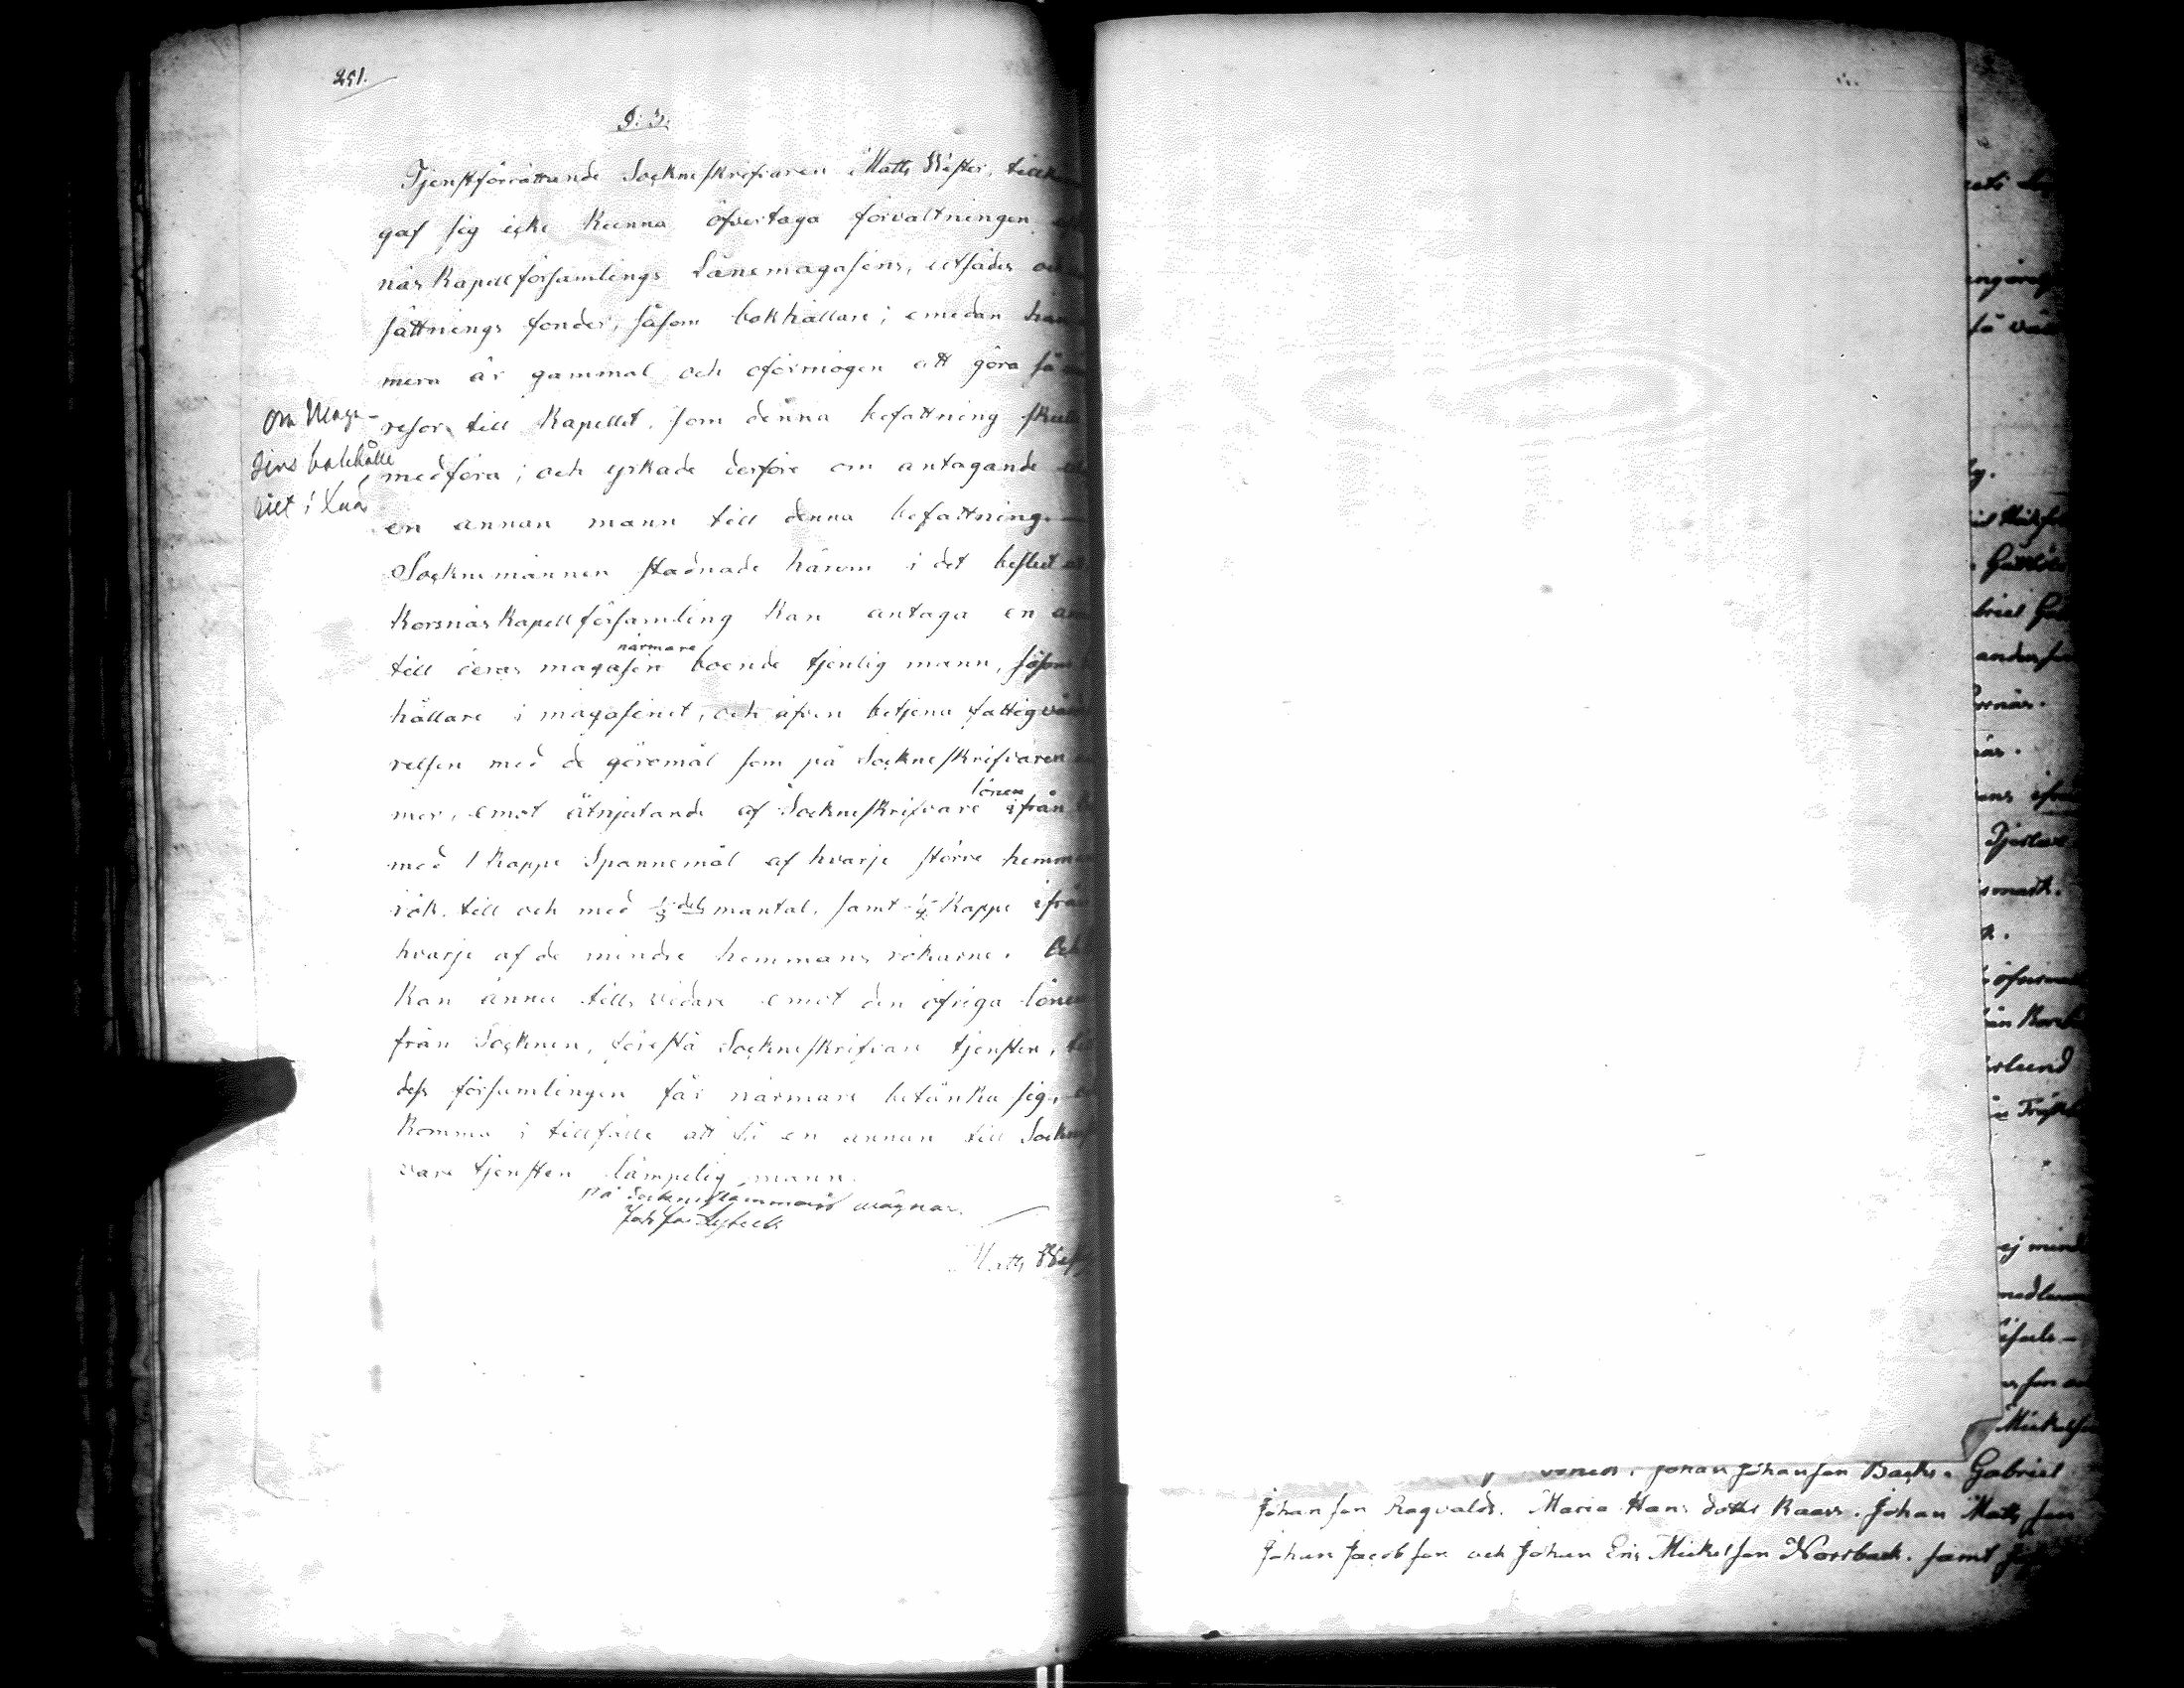 251.
§: 3:
Tjenstförrättande Sockneskrifvaren Matts Wester, tillkän
gaf sig icke kunna öfvertaga förvaltningen
näs Kapellförsamlings Lånemagasins, utsädes och
sättnings fonder, såsom bokhållare; emedan han
mera är gammal och oförmögen att göra så
resor till Kapellet, som denna befattning skulle
medföra; och yrkade derföre om antagande
en annan mann till denna befattning.
Om Maga-
zins bokhålle
riet i
Socknemännen stadnade härom i det beslut at
Korsnäs Kapellförsamling kan antaga en an
till deras magasin närmare boende tjenlig mann, såsom
hållare i magasinet, och äfven betjena fattigvård
relsen med de göromål som på Sockneskrifvaren
mer, emot åtnjutande af Sockneskrifvare lönen ifrån
med 1 Kappe Spannemål af hvarje större hemmans
rök, till och med 1/8 dels mantal, samt 1/2 Kappe ifrån
hvarje af de mindre hemmans rökarne. Och
kan ännu tills vidare emot den öfriga lönen
från Socknen, förestå Sockneskrifvare tjensten, till
dess församlingen får närmare betänka sig,
komma i tillfälle att få en annan till Sockneskrif
vare tjensten lämpelig mann.
På Socknestämmans vägnar.
Matts West
Johan Johansson Backs. Gabriel
Johansson Ragvalds. Maria Hans dotter Kaars. Johan Mattsson
Johan Jacobsson och Johan Eric Mickelsson Norrback. samt